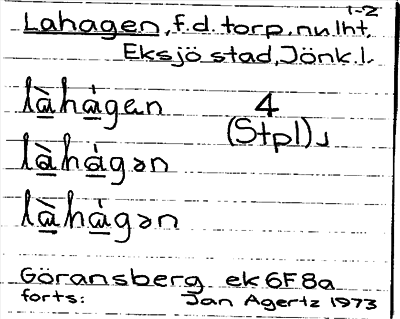 1-2
Lahagen, f.d. torp, nu lht,
Eksjö stad, Jönk.l.
làhágen 4
(Stpl)
làhágən
làhágən
Göransberg ek 6F 8a
forts: Jan Agertz 1973